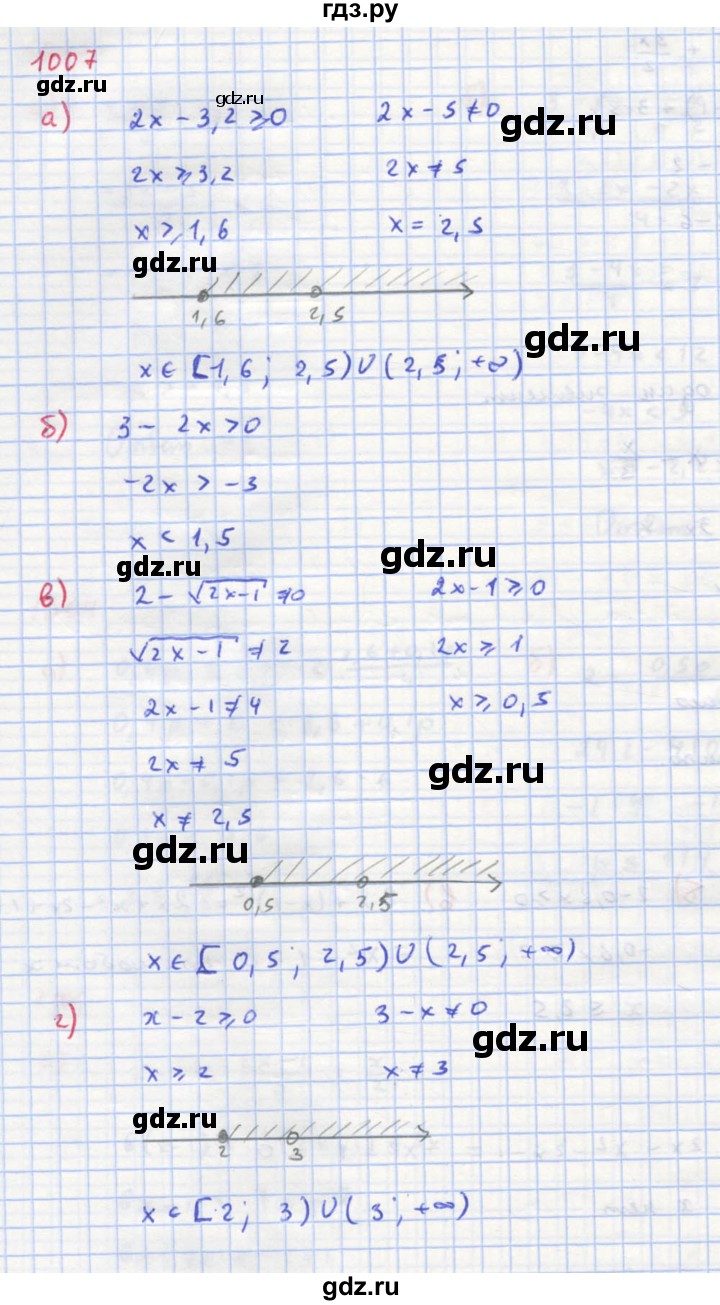 гдз.ру
1007
gdz.ru
а) 2x - 3,2 ⩾ 0 2x - 5 ≠ 0
gdz.ru
2x ⩾ 3,2 2x ≠ 5
x ⩾ 1,6 x = 2,5
gdz.ru
1,6 2,5
gdz.ru
x ∈ [1,6; 2,5) ∪ (2,5; +∞)
б) 3 - 2x > 0
-2x > -3
x < 1,5
gdz.ru gdz.ru
в) 2 - √2x-1 ≠ 0 2x - 1 ⩾ 0
√2x - 1 ≠ 2 2x ⩾ 1
2x - 1 ≠ 4 x ⩾ 0,5
2x ≠ 5
gdz.ru
x ≠ 2,5
gdz.ru
0,5 2,5
x ∈ [0,5; 2,5) ∪ (2,5; +∞)
г) x - 2 ⩾ 0 3 - x ≠ 0
gdz.ru
x ⩾ 2 x ≠ 3
gdz.ru
2 3
x ∈ [2; 3) ∪ (3; +∞)
gdz.ru